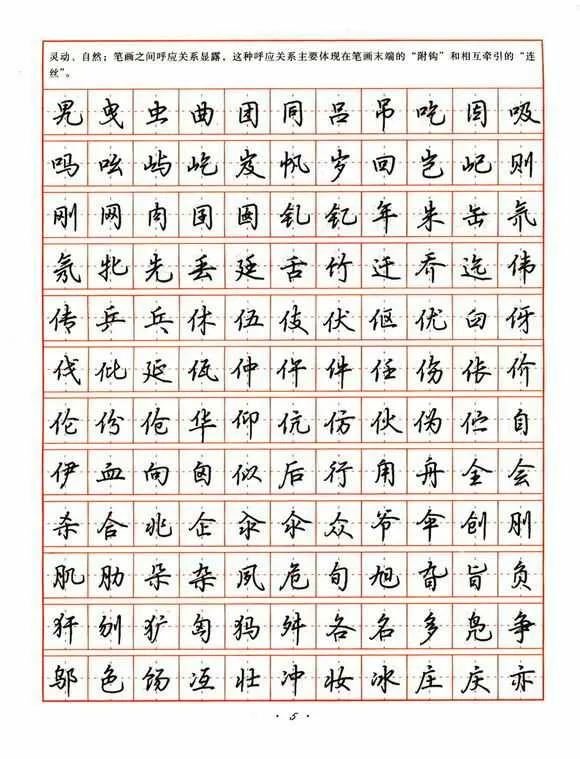 灵动、自然；笔画之间呼应关系显露，这种呼应关系主要体现在笔画末端的“附钩”和相互牵引的“连
丝”。
旯 曳 虫 曲 团 同 吕 吊 吃 因 吸
吗 吆 屿 屹 岌 帆 岁 回 岂 屺 则
刚 网 肉 囝 囡 钆 钇 年 朱 缶 氘
氖 牝 先 丢 廷 舌 竹 迁 乔 迄 伟
传 乒 乓 休 伍 伎 伏 伛 优 臼 伢
伐 仳 延 佤 仲 仵 件 任 伤 伥 价
伦 份 伧 华 仰 伉 仿 伙 伪 伫 自
伊 血 向 囟 似 后 行 甪 舟 全 会
杀 合 兆 企 汆 氽 众 爷 伞 创 刖
肌 肋 朵 杂 夙 危 旬 旭 旮 旨 负
犴 刎 犷 匈 犸 舛 各 名 多 凫 争
邬 色 饧 冱 壮 冲 妆 冰 庄 庆 亦
· 5 ·